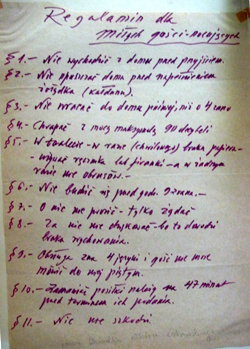 Regulamin dla
miłych gości-nocujących
§ 1.— Nie wychodzić z domu przed przyjściem.
§ 2.— Nie opuszczać domu przed napełnieniem
żołądka (każdemu).
§ 3.— Nie wracać do domu później niż o 4 rano
§ 4.— Chrapać z mocą maksymalną 90 decybeli
§ 5.— W toalecie – w razie (chwilowego) braku papieru –
używać ręcznika lub firanki – a w żadnym
razie nie obrusów.—
§ 6.— Nie budzić się przed godz. 9 rano.—
§ 7.— O nic nie prosić – tylko żądać
§ 8.— Za nic nie dziękować – bo to dowodzi
braku wychowania.
§ 9.— Obowiązują 4 języki i gość nie może
mówić do niej piątym.
§ 10.— Zamawiać posiłki należy na 47 minut
przed terminem ich podania.
§ 11.— Nic nie szkodzi